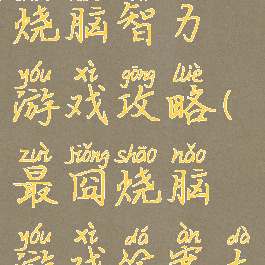 烧脑智力
yóu xì gōng lüè
游戏攻略(
zuì jiǒng shāo nǎo
最囧烧脑
yóu xì dá àn dà
游戏答案大